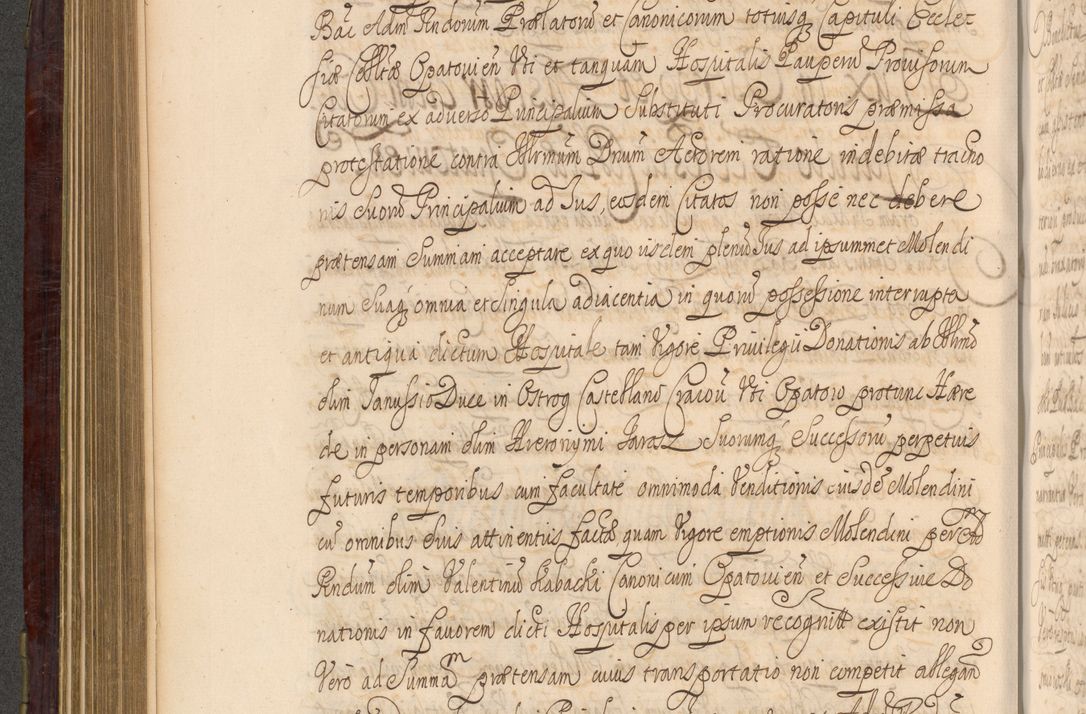 Bac Adm Rndorum Prælatorū et Canonicorum totiusq Capituli Eccle=
siæ Colltæ Opatovien̄ Uti et tanquam Hospitalis Pauperū Provisorum
Citatorum ex adverso Principalium Substituti Procuratoris præmissa
protestatione contra Illrmum Dnum Actorem ratione indebitæ tractio
nis Suorū Principalium ad Jus, eosdem Citatos non posse nec debere
prætensam Summam acceptare ex quo iisdem plenū Jus ad ipsummet Molendi
num Suaq omnia et Singula adiacentia in quorū possessione interrupta
et antiqua dictum Hospitale tam Vigore Privilegii Donationis ab Illmo
olim Janussio Duce in Ostrog Castellano Cracov̄ Uti Opatow protunc Hære
de in personam olim Hieronymi Jarosz Suorumq Successorū perpetuis
futuris temporibus cum facultate omnimoda Venditionis eiusdē Molendini
cū omnibus Suis attinentiis factæ, quam Vigore emptionis Molendini per Adm
Rndum olim Valentinū Rabacki Canonicum Opatovien̄ et Successive Do
nationis in favorem dicti Hospitalis per ipsum recognitt existit non
Verò ad Summam prætensam cuius transportatio non competit allegan̄